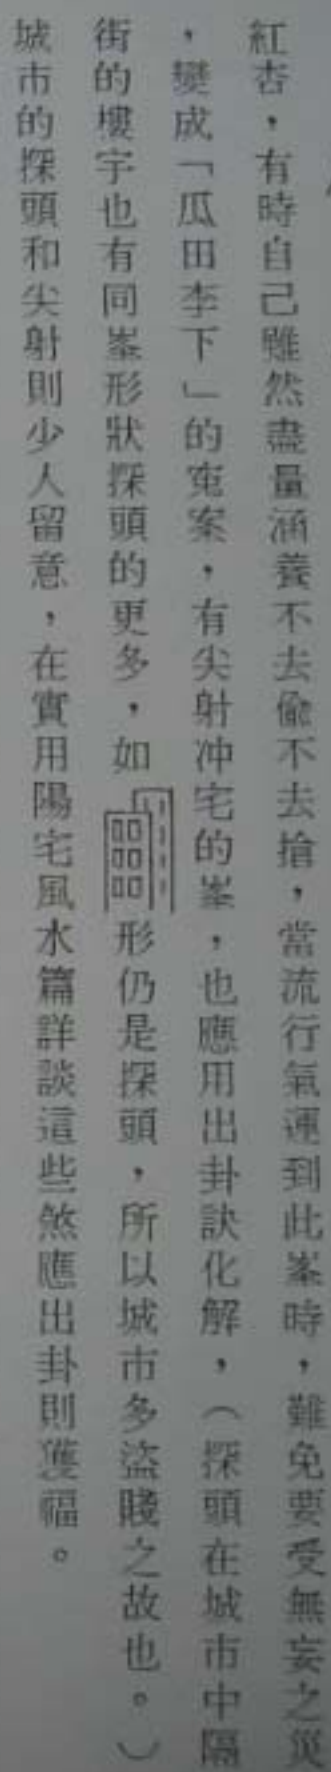 紅杏，有時自己雖然盡量涵養不去偷不去搶，當流行氣運到此峯時，難免要受無妄之災
，變成「瓜田李下」的寃案，有尖射冲宅的峯，也應用出卦訣化解，（探頭在城市中隔
街的樓宇也有同峯形狀探頭的更多，如形仍是探頭，所以城市多盜賤之故也。）
城市的探頭和尖射則少人留意，在實用陽宅風水篇詳談這些煞應出卦則獲福。